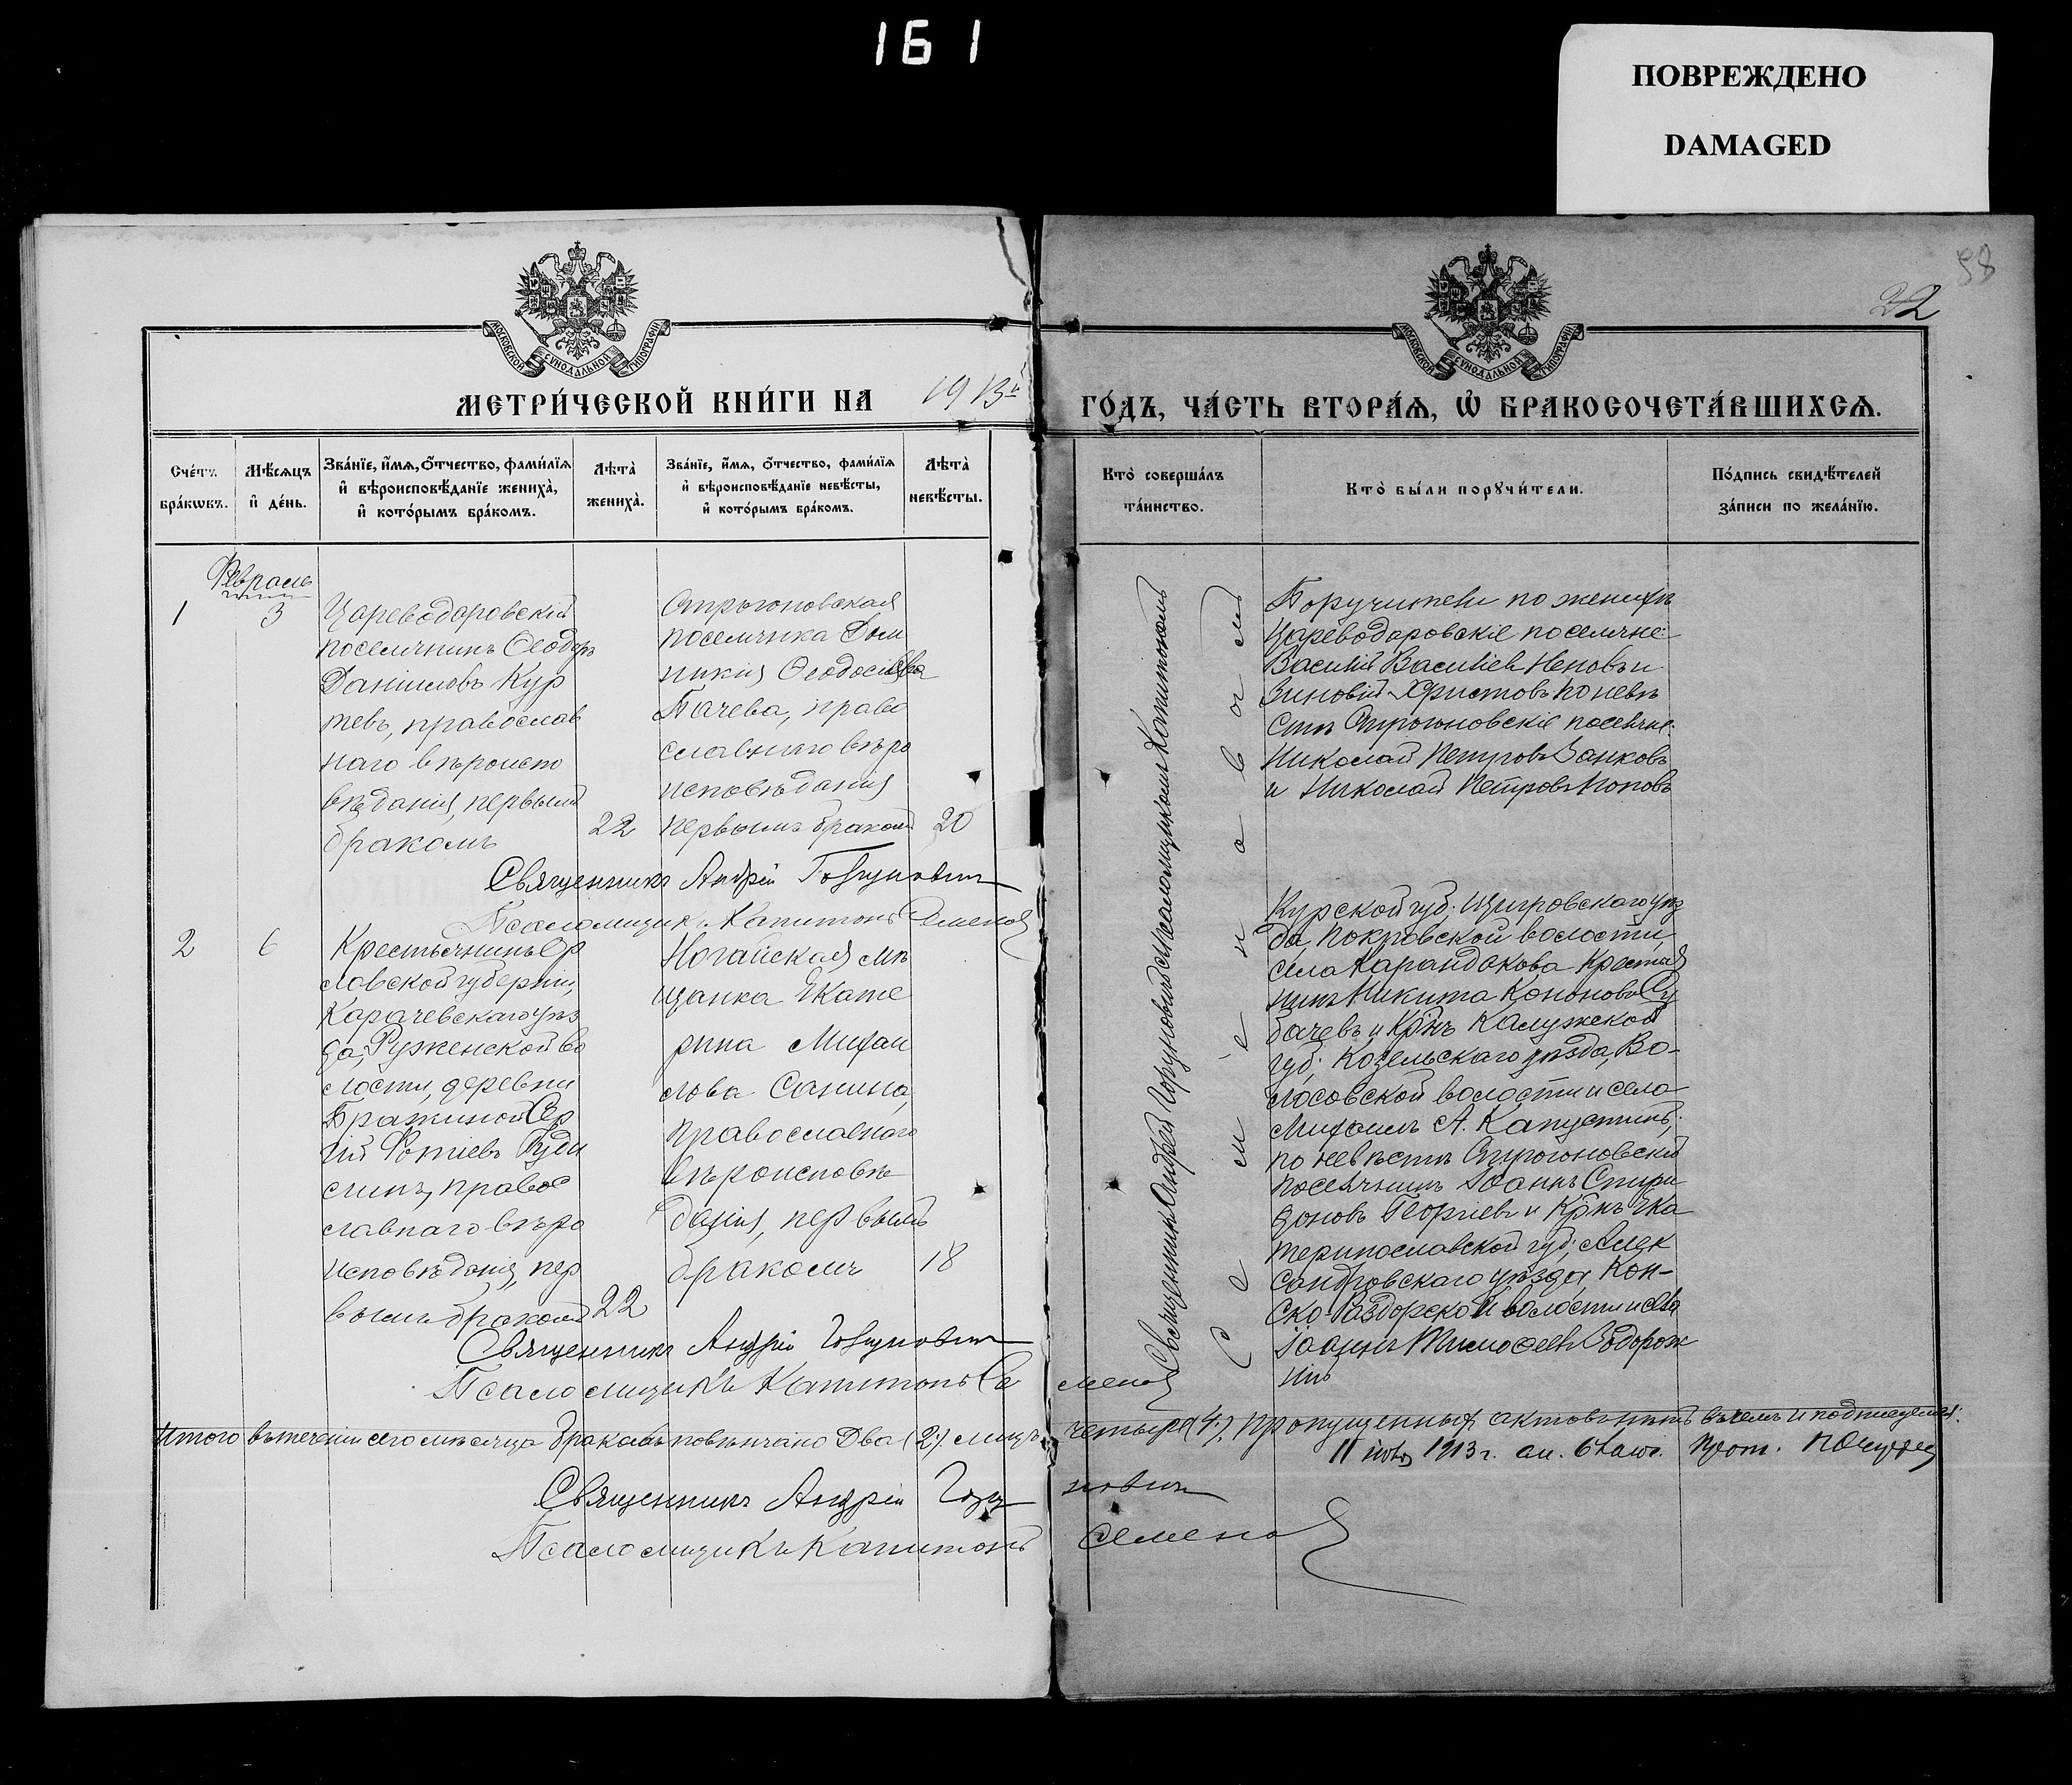 161
ПОВРЕЖДЕНО
DAMAGED
58
22
МОСКОВСКОЙ СѴНОДАЛЬНОЙ ТИПОГРАФІИ
МОСКОВСКОЙ СѴНОДАЛЬНОЙ ТИПОГРАФІИ
МЕТРИ́ЧЕСКОЙ КНИ́ГИ НА 1913й ГО́ДЪ, ЧА́СТЬ ВТОРА́Ѧ, Ѡ҆ БРАКОСОЧЕТА́ВШИХСѦ.
Сче́тъ
бра́кѡвъ.
Мѣ́сѧцъ
и҆ де́нь.
Зва́нїе, и҆́мѧ, ѻ҆́тчество, фами́лїѧ
и҆ вѣроисповѣ́данїе жениха̀,
и҆ кото́рымъ бра́комъ.
Лѣта̀
жениха̀.
Зва́нїе, и҆́мѧ, ѻ҆́тчество, фами́лїѧ
и҆ вѣроисповѣ́данїе невѣ́сты,
и҆ кото́рымъ бра́комъ.
Лѣта̀
невѣ́сты.
Кто̀ соверша́лъ
та́инство.
Кто̀ бы́ли порꙋчи́тели.
По́дпись свидѣ́телей
за́писи по жела́нїю.
Февраль
1
3
Цареводаровскій
поселянинъ Ѳеодоръ
Даніиловъ Кур
тевъ, православ
наго вѣроиспо
вѣданія, первымъ
бракомъ
22
Строгоновская
поселянка Дом
никія Ѳеодосіева
Пачева, право
славнаго вѣро
исповѣданія
первымъ бракомъ
20
Священникъ Андрій Горгуновичъ
Псаломщикъ Капитонъ Семеновъ
Священникъ Андрей Горгуновичъ съ псаломщикомъ Капитономъ
Семеновомъ
Поручители по женихѣ
Цареводаровскіе поселяне:
Василій Василіевъ Неновъ и
Зиновій Христовъ по невѣ
стѣ Строгоновскіе поселяне:
Николай Петровъ Занковъ
и Николай Петровъ Поповъ
2
6
Крестьянинъ Ор
ловской губерніи,
Карачевскаго уѣз
да, Руженской во
лости, деревни
Бражиной Сер
гій Фотіевъ
православнаго вѣро
исповѣданія, пер
вымъ бракомъ
22
Ногайская мѣ
щанка Екате
рина Михаи
лова Санина,
православнаго
вѣроисповѣ
данія, первымъ
бракомъ
18
Курской губ., Щигровскаго уѣз
да, Покровской волости,
села Карандакова крестья
нинъ Никита Кононовъ Су
бачевъ и Кр̃нъ Калужской
губ. Козельскаго уѣзда, Во-
лосовской волости и села
Михаилъ А. Капустинъ;
по невѣстѣ Строгоновскій
поселянинъ Іоаннъ Спири
доновъ Георгіевъ и Кр̃нъ Ека
теринославской губ., Алек
сандровскаго уѣзда Кон-
ско-Раздорской волости и села
Іоаннъ Тимоѳеевъ Водорож
Священникъ Андрій Горгуновичъ
Псаломщикъ Капитонъ Семеновъ
Итого въ теченіи сего мѣсяца браковъ повѣнчано Два (2), лицъ четыре (4). Пропущенныхъ актовъ нѣтъ въ чемъ и подписуемся:
Священникъ Андрій Горгуновичъ
Псаломщикъ Капитонъ Семеновъ
1913 г.